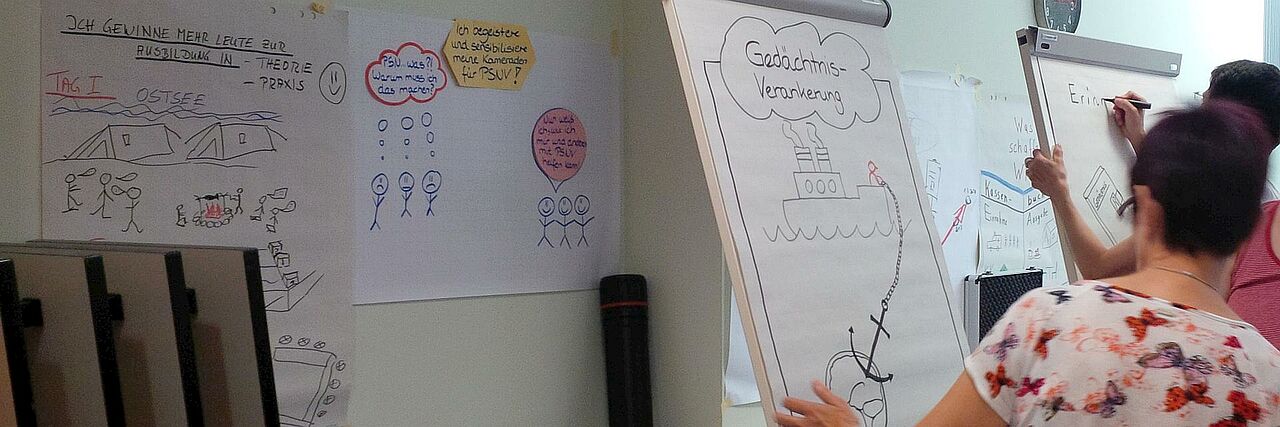 ICH GEWINNE MEHR LEUTE ZUR
AUSBILDUNG IN - THEORIE
- PRAXIS
TAG I
OSTSEE
PSNV was?!
Warum muss ich
das machen?
Ich begeistere
und sensibilisiere
meine Kameraden
für PSNV!
Nur weiß
ich, wie ich
mir und anderen
mit PSNV
helfen kann!
Gedächtnis-
Verankerung
Was
schaf
W
Kassen- Buch
Einnahme Ausgabe
Erinn